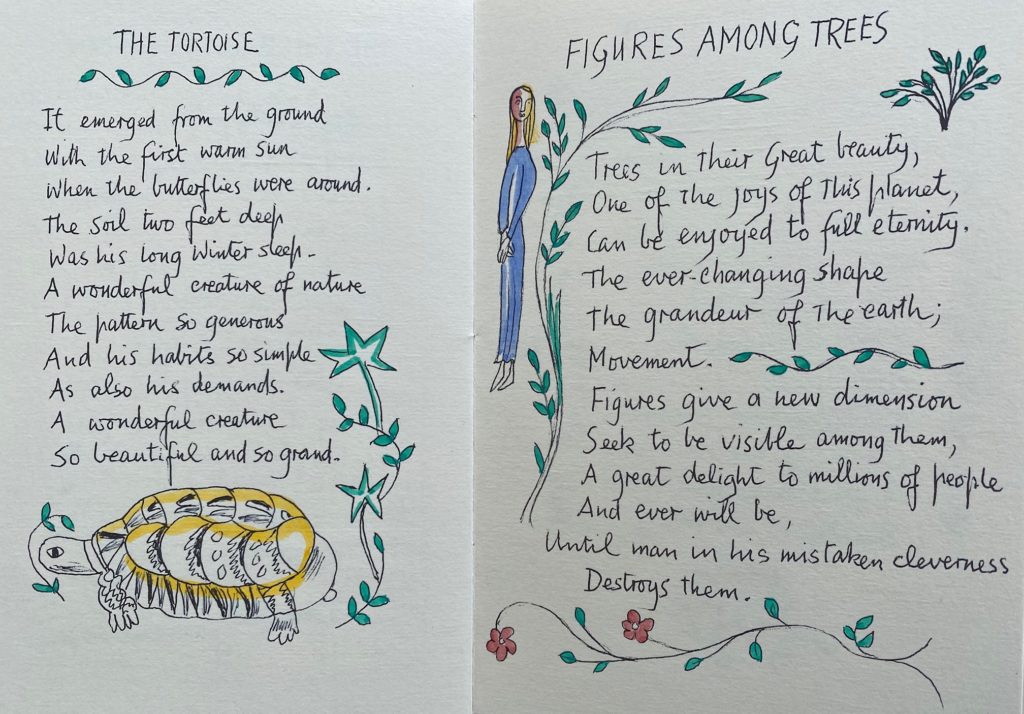 THE TORTOISE
It emerged from the ground
With the first warm sun
When the butterflies were around.
The soil two feet deep
Was his long Winter sleep.
A wonderful creature of nature
The pattern so generous
And his habits so simple
As also his demands.
A wonderful creature
So beautiful and so grand.
FIGURES AMONG TREES
Trees in their Great beauty,
One of the joys of This planet,
Can be enjoyed to full eternity.
The ever-changing shape
The grandeur of The earth;
Movement.
Figures give a new dimension
Seek to be visible among them,
A great delight to millions of people
And ever will be,
Until man in his mistaken cleverness
Destroys them.